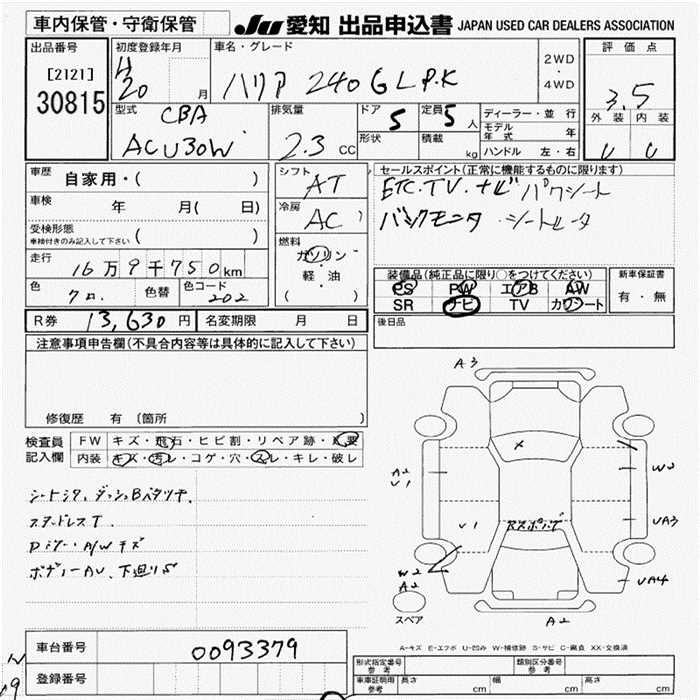 車内保管・守衛保管 JU 愛知 出品申込書 JAPAN USED CAR DEALERS ASSOCIATION
出品番号 初度登録年月 車名・グレード 評価点
[2121]
30815
H20 月 ハリア 240G L P.K 2WD ・ 4WD 3.5
型式 CBA 排気量 ドア 5 定員 5 人 ディーラー・並行 外装 内装
ACU30W 2.3 CC 形状 積載 kg モデル年式 年
ハンドル 左・右
車歴 自家用・( ) シフト AT セールスポイント(正常に機能するものに限ります)
車検 年 月( 日) 冷房 AC ETC.TV.ナビ パワシート
受検形態 ( ) バックモニタ シートヒータ
車検付きのみ記入して下さい
走行 燃料
16万9千750km ガソリン・軽・油 ( ) 装備品(純正品に限り○をつけてください) 新車保証書
色 クロ. 色替 色コード 202 PS PW エアB AW 有・無
SR ナビ TV カワシート
R券 13,630円 名変期限 月 日 後日品
注意事項申告欄(不具合内容等は具体的に記入して下さい)
修復歴 有 〔箇所 〕
検査員 FW キズ・飛石・ヒビ割・リペア跡・X要
記入欄 内装 キズ・汚レ・コゲ・穴・スレ・キレ・破レ
シートシワ、ダッシュBベタツキ.
スタッドレスT.
Dミラー・A/Wキズ
ボディーAU、下廻りS
A3
X
A2
U1
W3
U1
Rスポイラ
UA3
W2
A2
UA4
スペア
A2
車台番号 0093379
登録番号
A-キズ E-エクボ U-凹み W-補修跡 S-サビ C-腐食 XX-交換済
形式指定番号 参考 類別区分番号 参考
車庫証明用 参考 長さ cm 幅 cm 高さ cm